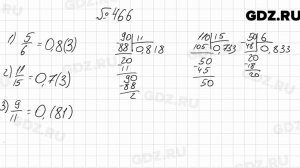 GDZ.RU
№466
1) 5/6 = 0,8(3)
90 | 11
88 | 0,818
20
11
90
88
2
110 | 15
105 | 0,733
50
45
50
50 | 6
48 | 0,833
20
18
20
2) 11/15 = 0,7(3)
3) 9/11 = 0,(81)
GDZ.RU